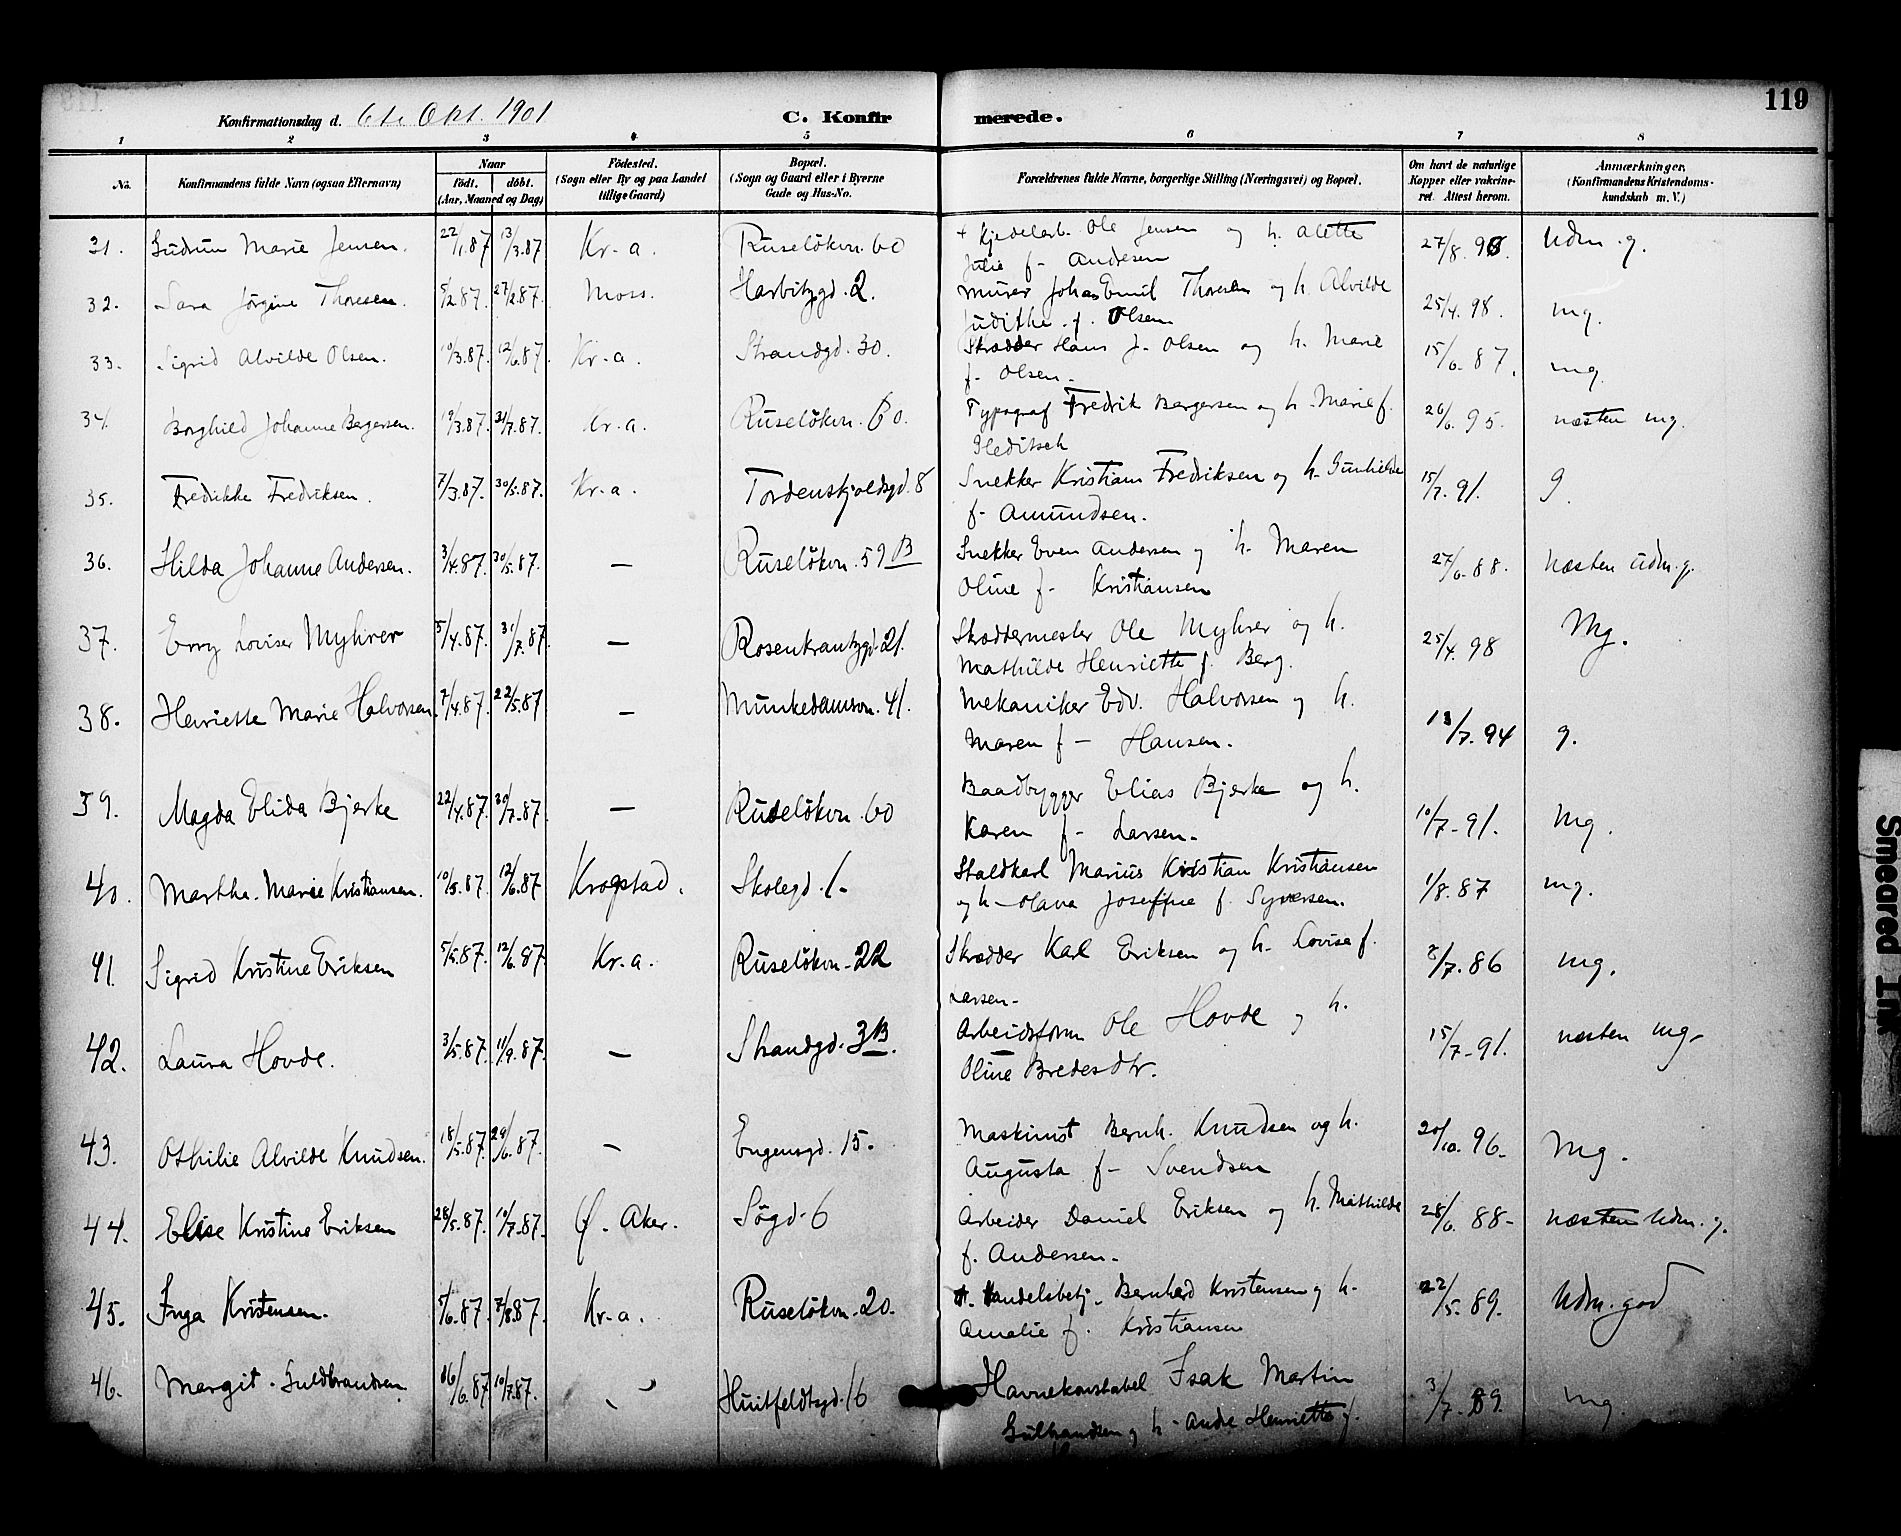 119
Konfirmationsdag d. 6te Okt. 1901
C. Konfirmerede.
1 2 3 4 5 6 7 8
No.
Konfirmandens fulde Navn (ogsaa Efternavn)
Naar
født. døbt.
(Aar, Maaned og Dag)
Fødested.
(Sogn eller By og paa Landet
tillige Gaard)
Bopæl.
(Sogn og Gaard eller i Byerne
Gade og Hus-No.
Forældrenes fulde Navne, borgerlige Stilling (Næringsvei) og Bopæl.
Om havt de naturlige
Kopper eller vakcine-
ret. Attest herom.
Anmærkninger.
(Konfirmandens Kristendoms-
kundskab m. V.)
31. Gudrun Marie Jensen. 22/1.87 13/3.87 Kr-a. Ruseløkvn. 60 + Kjedelarb. Ole Jensen og h. Alette 27/8. 98. Udm. g.
Julie f- Andresen
32. Sara Jørgine Thoresen. 5/2.87. 27/2.87. Moss. Harbitzgd. 2. Murer Johan Emil Thoresen og h. Alvilde 25/4. 98. mg.
Judithe f. Olsen
33. Sigrid Alvilde Olsen. 10/3.87. 12/6.87 Kr-a. Strandgd. 30. Skrædder Hans J. Olsen og h. Marie 15/6. 87. mg.
f- Olsen.
34. Borghild Johanne Bergersen. 19/3.87. 31/7.87. Kr.a. Ruseløkvn. 60. Typograf Fredrik Bergersen og h. Marie f. 26/6. 95. næsten mg.
Gleditsch
35. Fredrikke Fredriksen. 7/3.87. 30/5.87. Kr-a. Tordenskjoldsgd. 8 Snekker Kristian Fredriksen og h. Gunhilde 15/7. 91. g.
f- Amundsen.
36. Hilda Johanne Andersen. 3/4.87. 30/5.87. — Ruseløkvn. 59 B Snekker Even Andersen og h. Maren 27/6. 88. Næsten Udm. g.
Oline f- Kristiansen
37. Erry Lovise Myhrer 5/4.87. 31/7.87. — Rosenkrantzgd. 21. Skræddermester Ole Myhrer og h. 25/4. 98 Mg.
Mathilde Henriette f. Berg.
38. Henriette Marie Halvorsen. 7/4.87. 22/5.87 — Munkedamsvn. 41. Mekaniker Edv. Halvorsen og h. 13/7. 94 g.
Maren f- Hansen.
39. Magda Elida Bjerke 22/4.87. 30/7.87. — Ruseløkvn. 60 Baadbygger Elias Bjerke og h. 10/7-91. Mg.
Karen f- Larsen.
40. Marthe Marie Kristiansen. 10/5.87. 12/6.87 Krogstad. Skolegd. 1. Staldkarl Marius Kristian Kristiansen 1/8. 87 mg.
og h- Olava Josefine f. Syversen.
41. Sigrid Kristine Eriksen 5/5.87. 12/6.87 Kr.a. Ruseløkvn. 22 Skrædder Karl Eriksen og h. Lovise f. 8/7. 86 mg.
Larsen-
42. Laura Hovde. 3/5.87. 11/9.87. — Strandgd. 3B. Arbeidsform Ole Hovde og h. 15/7-91. næsten mg-
Oline Bredesdtr.
43. Othilie Alvilde Knudsen. 18/5.87. 29/6.87. — Engensgd. 15. Maskinist Bernh. Knudsen og h. 20/10. 96. Mg.
Augusta f- Svendsen
44. Elise Kristine Eriksen 28/5.87. 10/7.87. Ø. Aker. Søgd. 6 Arbeider Daniel Eriksen og h. Mathilde 28/6. 88- næsten Udm. g.
f. Andersen.
45. Inga Kristensen. 5/6.87. 7/8.87. Kr-a. Ruseløkvn. 20. Handelsbetj. Bernhard Kristensen og h. 22/5. 89. Udm. god
Amalie f. Kristiansen
46. Margit Guldbrandsen 16/6.87 10/7.87. — Huitfeldtsgd. 16 Havnekonstabel Isak Martin 3/7. 89. mg.
Gulbrandsen og h- Henriette f.
Smeared Ink